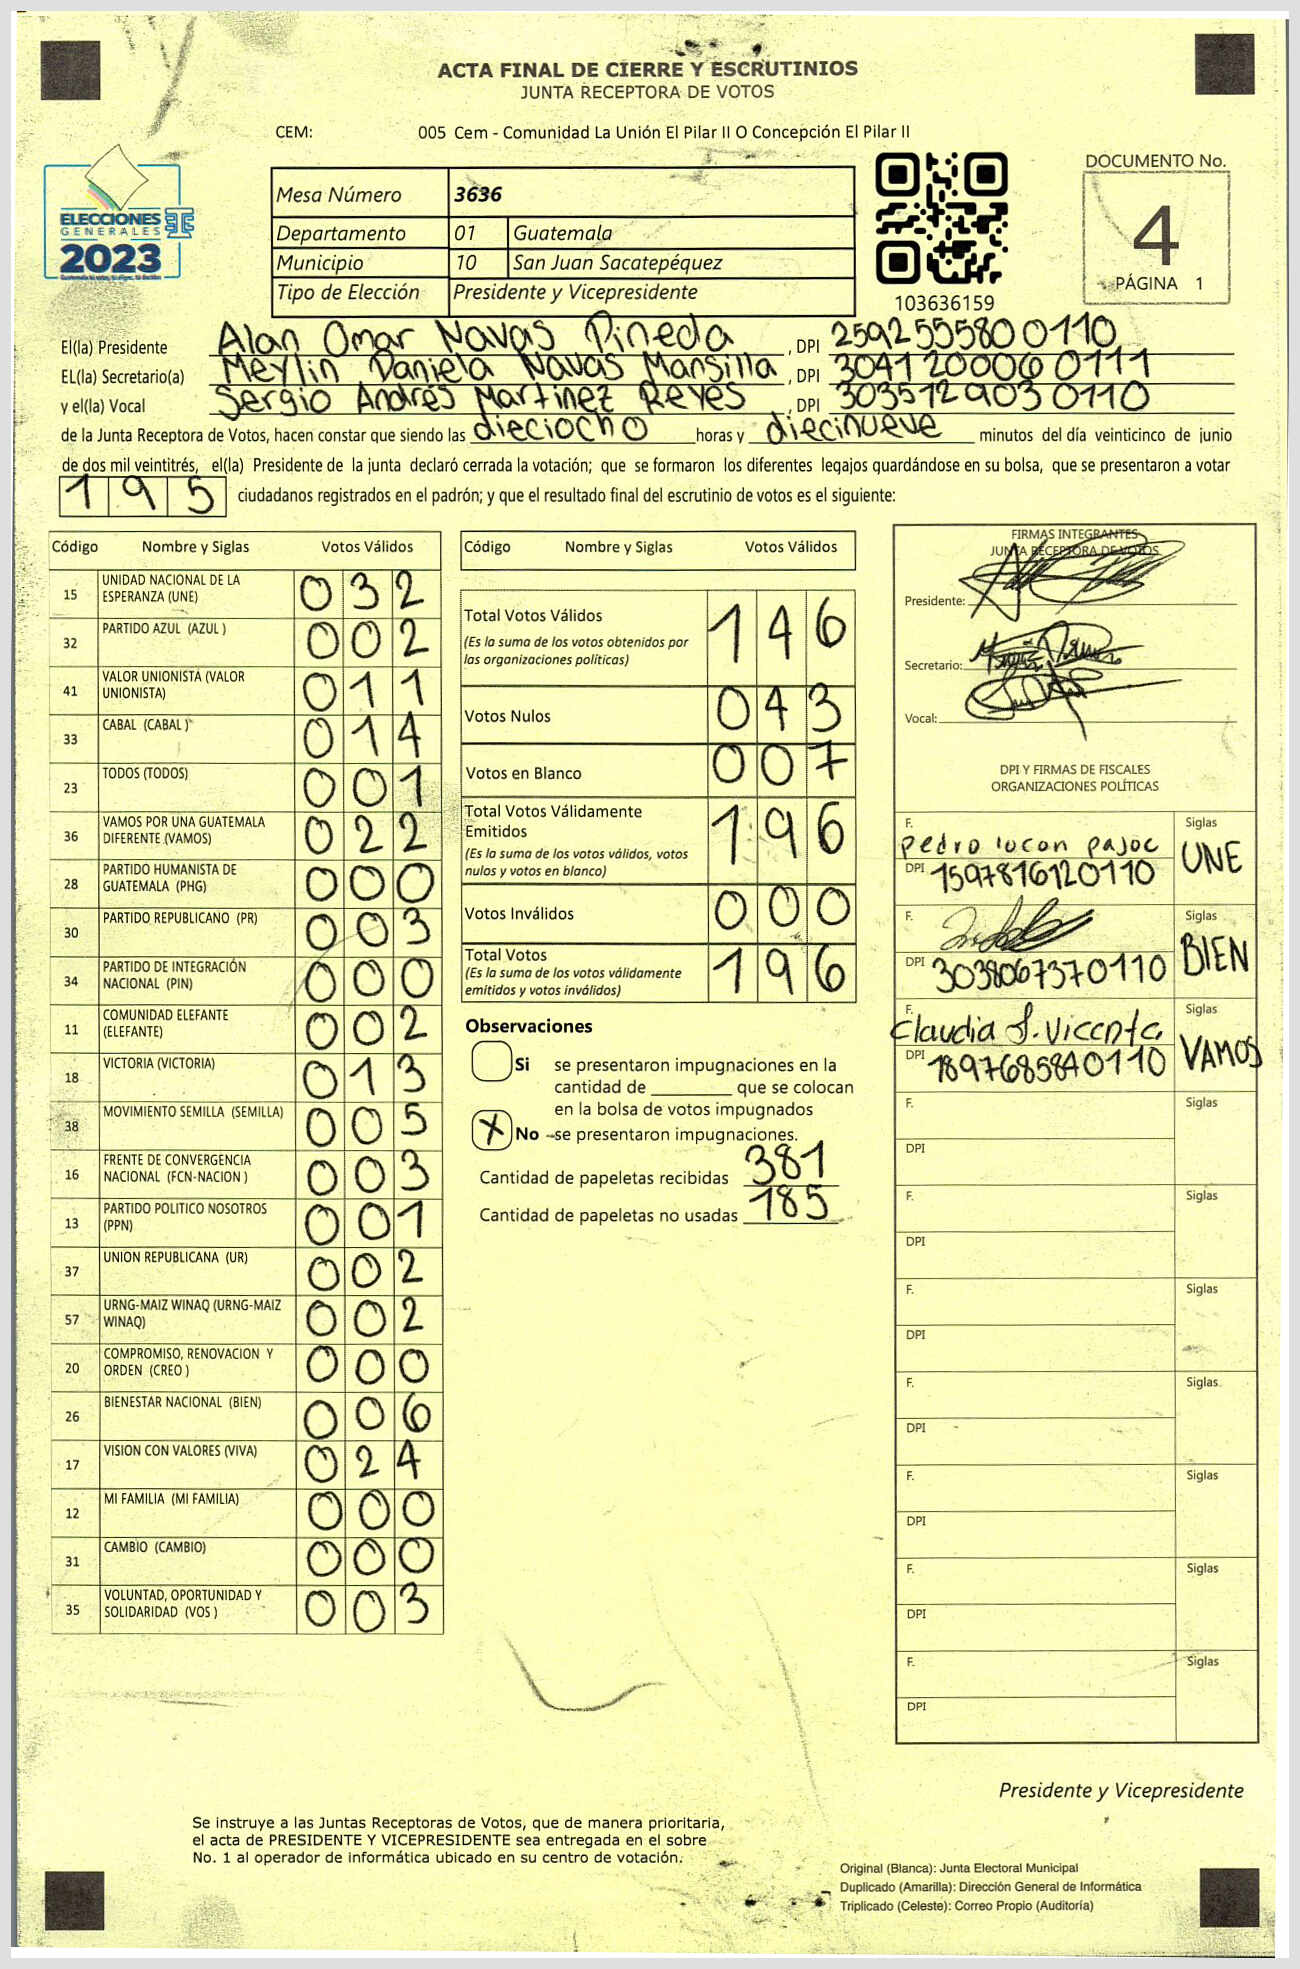 ACTA FINAL DE CIERRE Y ESCRUTINIOS
JUNTA RECEPTORA DE VOTOS
CEM: 005 Cem - Comunidad La Unión El Pilar II O Concepción El Pilar II
ELECCIONES
GENERALES
2023
Mesa Número 3636
Departamento 01 Guatemala
Municipio 10 San Juan Sacatepéquez
Tipo de Elección Presidente y Vicepresidente
103636159
DOCUMENTO No.
4
PÁGINA 1
El(la) Presidente Alan Omar Navas Pineda, DPI 2592555800110
EL(la) Secretario(a) Meylin Daniela Navas Mansilla, DPI 3041200060111
y el(la) Vocal Sergio Andrés Martinez Reyes, DPI 3035129030110
de la Junta Receptora de Votos, hacen constar que siendo las dieciocho horas y diecinueve minutos del día veinticinco de junio
de dos mil veintitrés, el(la) Presidente de la junta declaró cerrada la votación; que se formaron los diferentes legajos guardándose en su bolsa, que se presentaron a votar
195 ciudadanos registrados en el padrón; y que el resultado final del escrutinio de votos es el siguiente:
Código Nombre y Siglas Votos Válidos
15 UNIDAD NACIONAL DE LA ESPERANZA (UNE) 032
32 PARTIDO AZUL (AZUL ) 002
41 VALOR UNIONISTA (VALOR UNIONISTA) 011
33 CABAL (CABAL ) 014
23 TODOS (TODOS) 001
36 VAMOS POR UNA GUATEMALA DIFERENTE (VAMOS) 022
28 PARTIDO HUMANISTA DE GUATEMALA (PHG) 000
30 PARTIDO REPUBLICANO (PR) 003
34 PARTIDO DE INTEGRACIÓN NACIONAL (PIN) 000
11 COMUNIDAD ELEFANTE (ELEFANTE) 002
18 VICTORIA (VICTORIA) 013
38 MOVIMIENTO SEMILLA (SEMILLA) 005
16 FRENTE DE CONVERGENCIA NACIONAL (FCN-NACION ) 003
13 PARTIDO POLITICO NOSOTROS (PPN) 001
37 UNION REPUBLICANA (UR) 002
57 URNG-MAIZ WINAQ (URNG-MAIZ WINAQ) 002
20 COMPROMISO, RENOVACION Y ORDEN (CREO ) 000
26 BIENESTAR NACIONAL (BIEN) 006
17 VISION CON VALORES (VIVA) 024
12 MI FAMILIA (MI FAMILIA) 000
31 CAMBIO (CAMBIO) 000
35 VOLUNTAD, OPORTUNIDAD Y SOLIDARIDAD (VOS ) 003
Código Nombre y Siglas Votos Válidos
Total Votos Válidos 146
(Es la suma de los votos obtenidos por
las organizaciones políticas)
Votos Nulos 043
Votos en Blanco 007
Total Votos Válidamente
Emitidos 196
(Es la suma de los votos válidos, votos
nulos y votos en blanco)
Votos Inválidos 000
Total Votos 196
(Es la suma de los votos válidamente
emitidos y votos inválidos)
Observaciones
Si se presentaron impugnaciones en la
cantidad de ________ que se colocan
en la bolsa de votos impugnados
X No se presentaron impugnaciones.
Cantidad de papeletas recibidas 381
Cantidad de papeletas no usadas 185
FIRMAS INTEGRANTES
JUNTA RECEPTORA DE VOTOS
Presidente:
Secretario:
Vocal:
DPI Y FIRMAS DE FISCALES
ORGANIZACIONES POLÍTICAS
F. pedro locon pajoc Siglas
DPI 1597816120110 UNE
F. Siglas
DPI 3038067370110 BIEN
F. Claudia J. Vicente. Siglas
DPI 1897685840110 VAMOS
F. Siglas
DPI
F. Siglas
DPI
F. Siglas
DPI
F. Siglas
DPI
F. Siglas
DPI
F. Siglas
DPI
F. Siglas
DPI
Presidente y Vicepresidente
Se instruye a las Juntas Receptoras de Votos, que de manera prioritaria,
el acta de PRESIDENTE Y VICEPRESIDENTE sea entregada en el sobre
No. 1 al operador de informática ubicado en su centro de votación.
Original (Blanca): Junta Electoral Municipal
Duplicado (Amarilla): Dirección General de Informática
Triplicado (Celeste): Correo Propio (Auditoría)